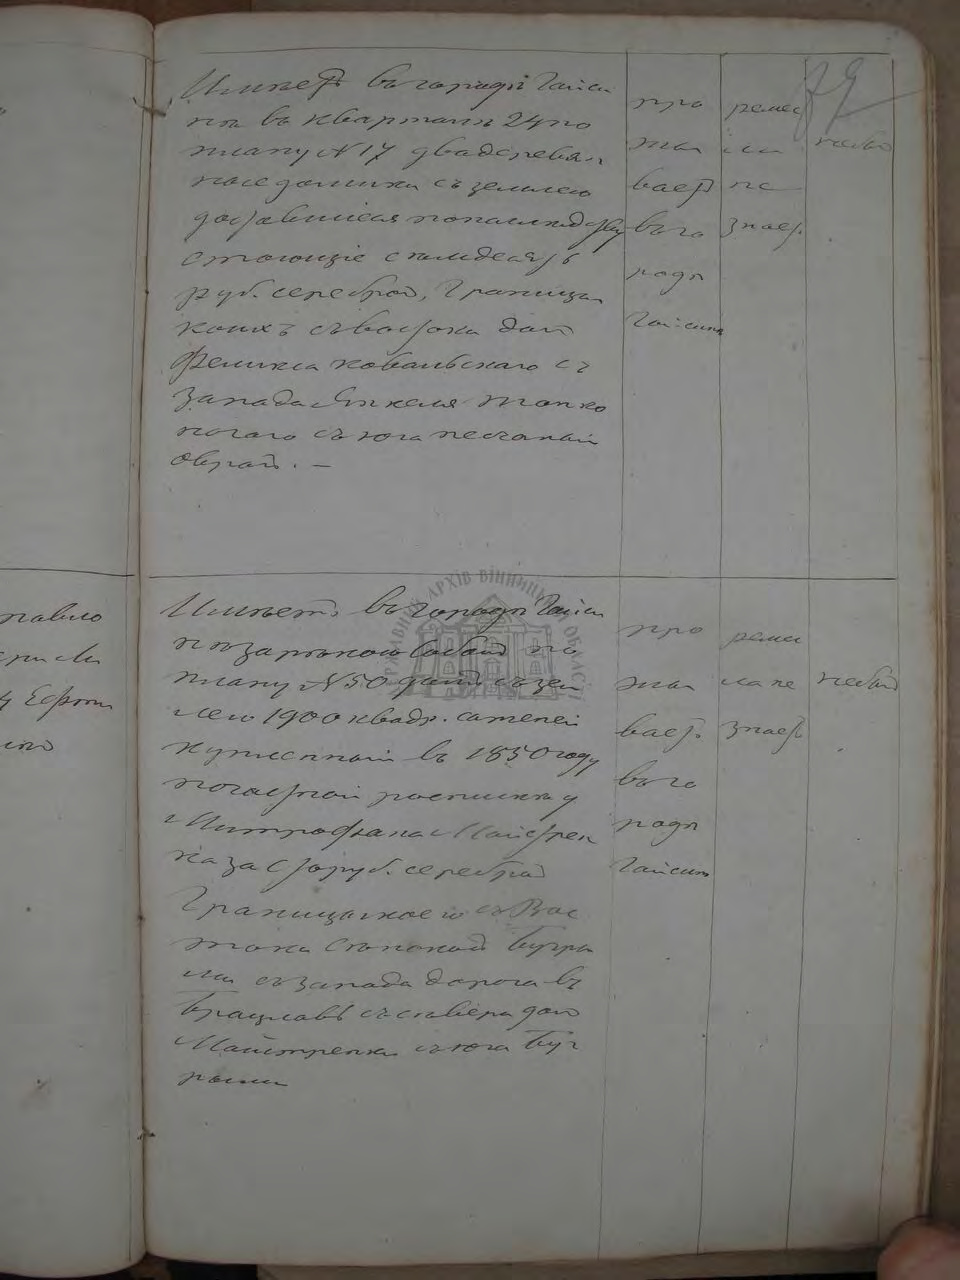 79
Имѣетъ въ городѣ Гайси
нѣ въ квартатѣ 24 по
плану N 17 два деревян
ные домика съ землею
доставшіеся по наслѣдству
стоющіе семдесятъ
руб. серебромъ, Граница
коихъ съ востока домъ
Феликса Ковальскаго съ
Запада Янкеля
съ юга песчаный
оврагъ. —
про
жи
ваетъ
въ го
родѣ
Гайсинѣ
ремес
ла
не
знаетъ
небылъ
павло
Ефрем
Имѣетъ въ городѣ Гайси
нѣ за рѣкою Собомъ по
плану N 50 домъ съ зем
лею 1900 квадр. саженей
купленный въ 1850 году
по частной роспискѣ у
Митрофана Майстрен
ка за сто руб. серебромъ
Граница коего съ Вос
тока Бугра
ми съ запада дорога въ
Брацлавъ съ сѣвера домъ
Майстренка съ юга Буг
рами
про
жи
ваетъ
въ го
родѣ
Гайсинѣ
ремес
ла не
знаетъ
небылъ
ДЕРЖАВНИЙ АРХІВ ВІННИЦЬКОЇ ОБЛАСТІ